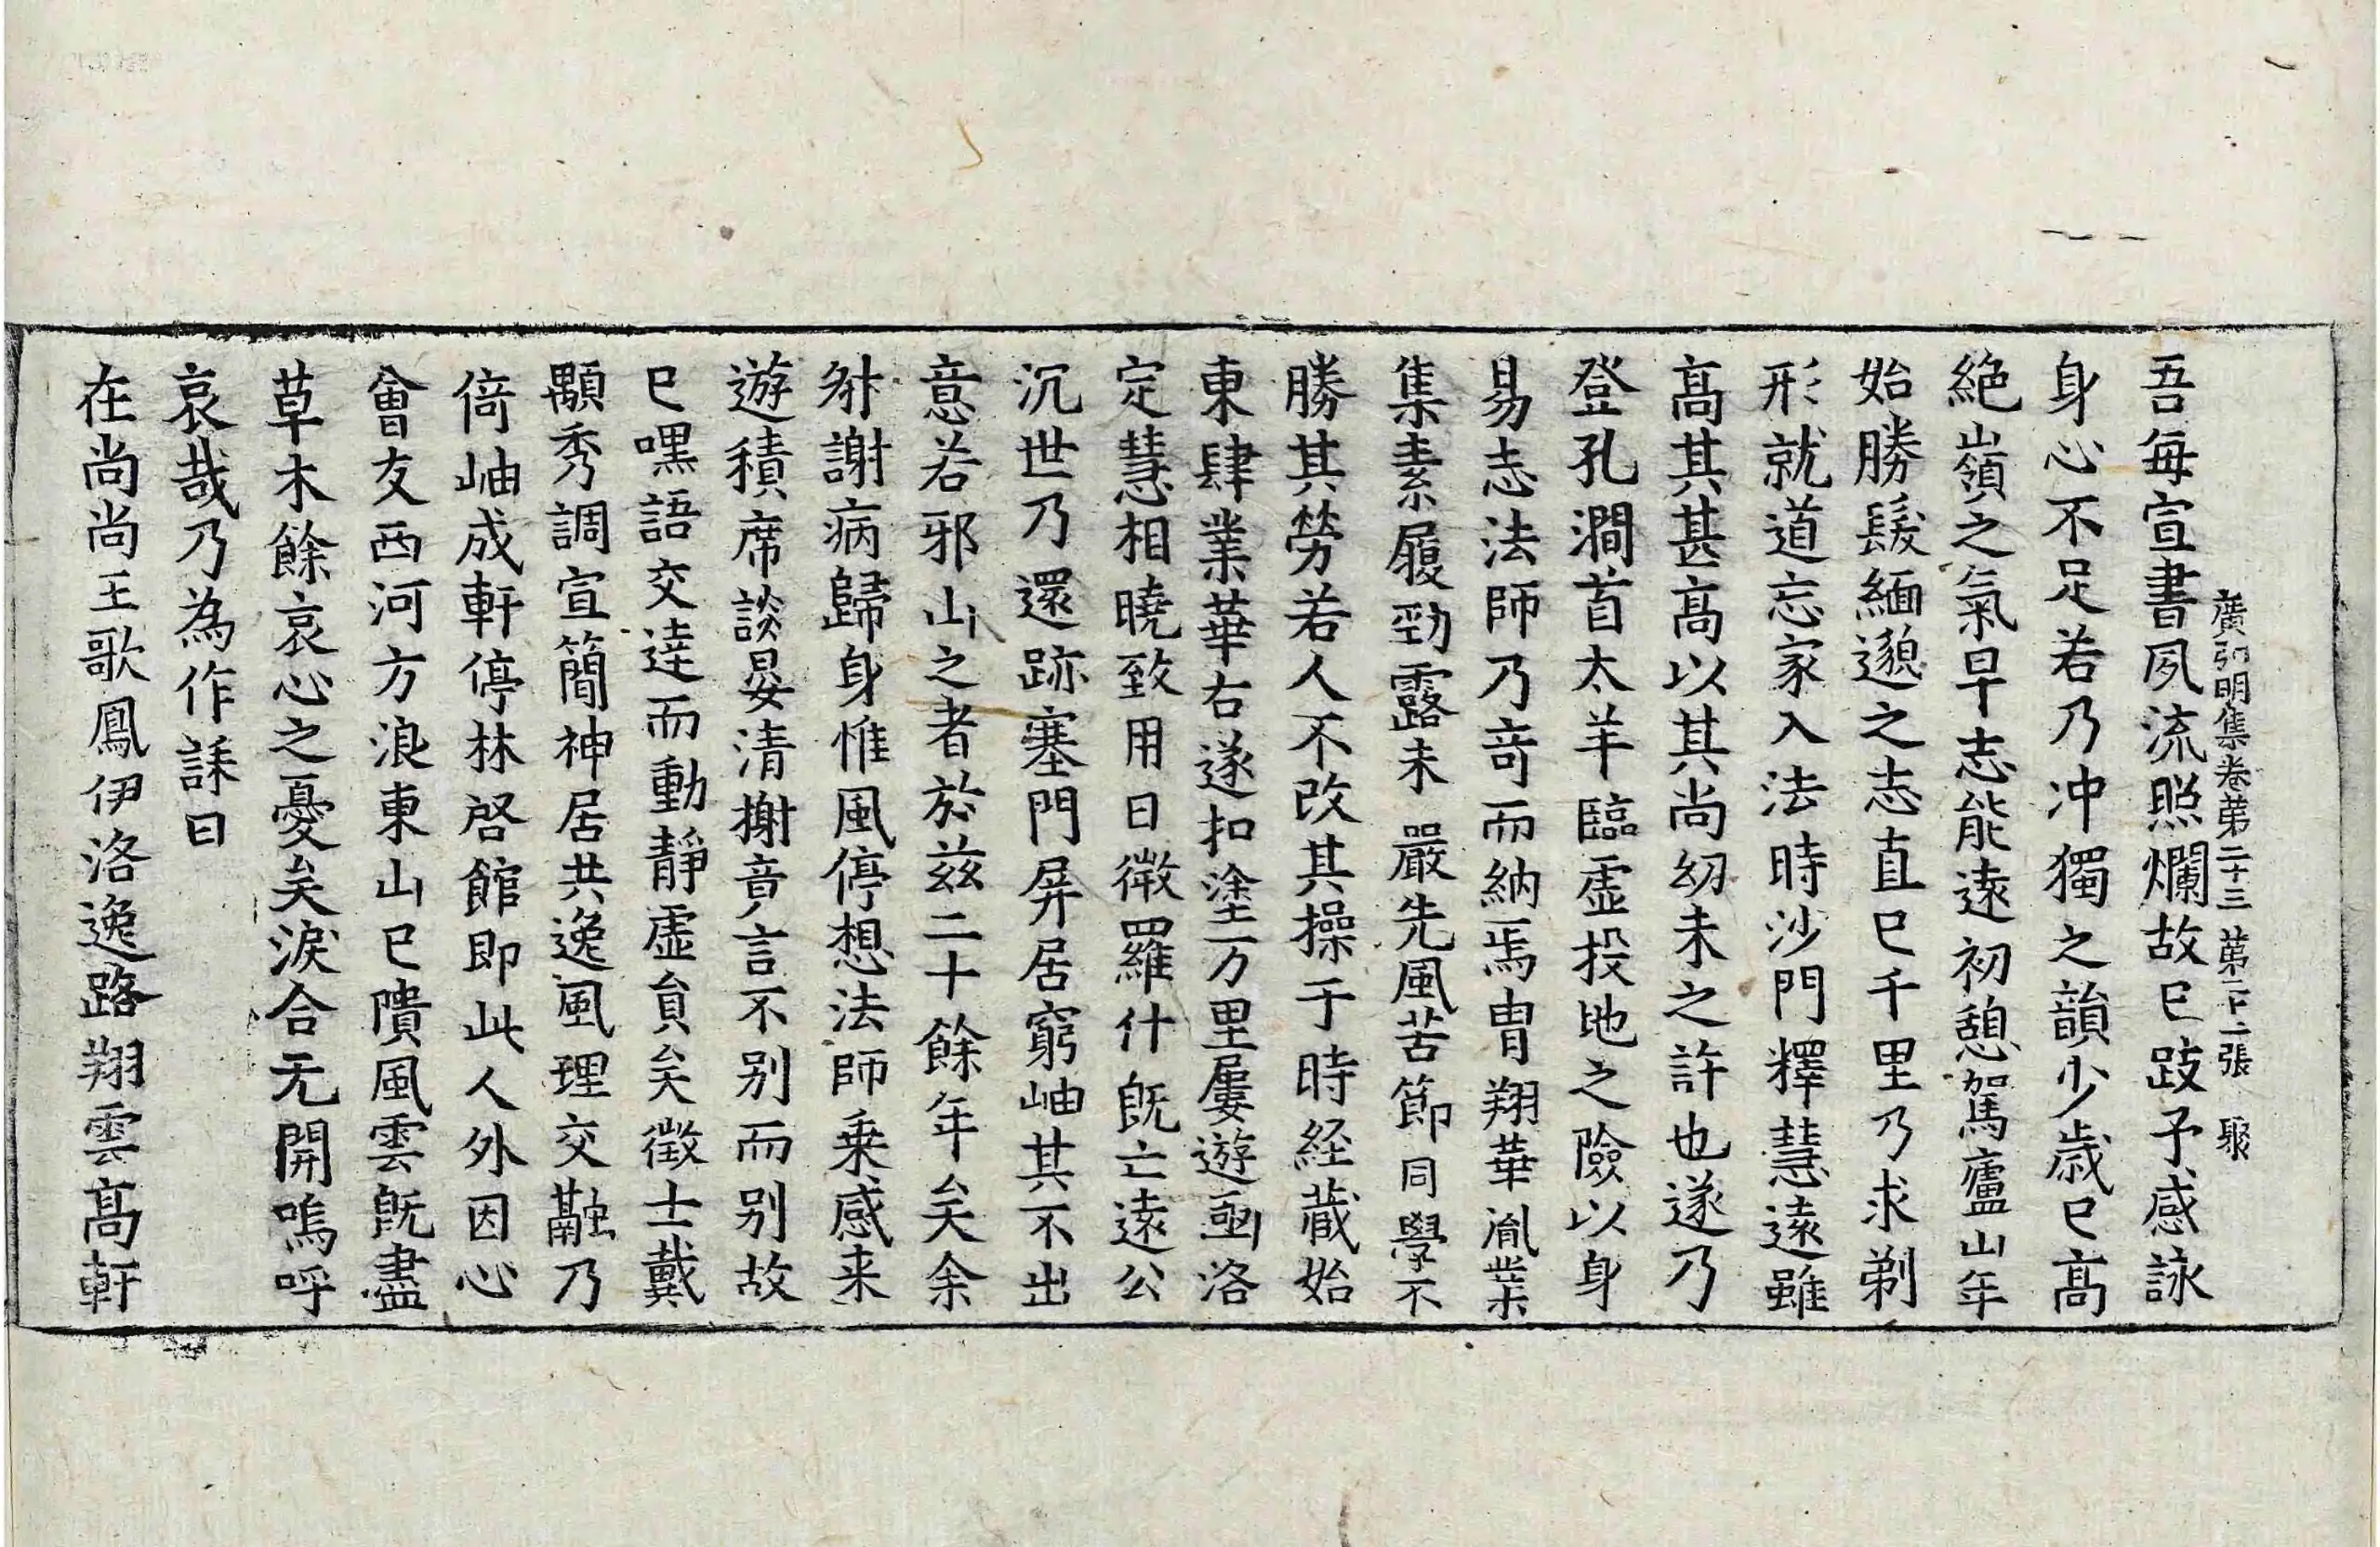 廣弘明集卷第二十三 第二十一張 聚
吾每宣書夙流照爛故已跂予感詠
身心不足若乃冲獨之韻少歲已高
絕嶺之氣早志能遠初憩駕廬山年
始勝髮緬邈之志直已千里乃求剃
形就道忘家入法時沙門釋慧遠雖
高其甚高以其尚幼未之許也遂乃
登孔澗首太羊臨虛投地之險以身
易志法師乃奇而納焉胄翔華胤業
集素履勁露未嚴先風苦節同學不
勝其勞若人不改其操于時経藏始
東肆業華右遂扣塗万里屢遊函洛
定慧相曉致用日微羅什旣亡遠公
沉世乃還跡塞門屏居窮岫其不出
意若邪山之者於兹二十餘年矣余
謝病歸身惟風停想法師乗感来
遊積席談晏清榭音言不别而别故
已嘿語交逹而動静虛負矣徵士戴
顒秀調宣簡神居共逸風理交融乃
倚岫成軒停林啓館即此人外因心
會友西河方浪東山已隤風雲旣盡
草木餘哀心之憂矣淚合无開嗚呼
哀哉乃為作誄曰
在尚尚王歌鳳伊洛逸路翔雲高軒